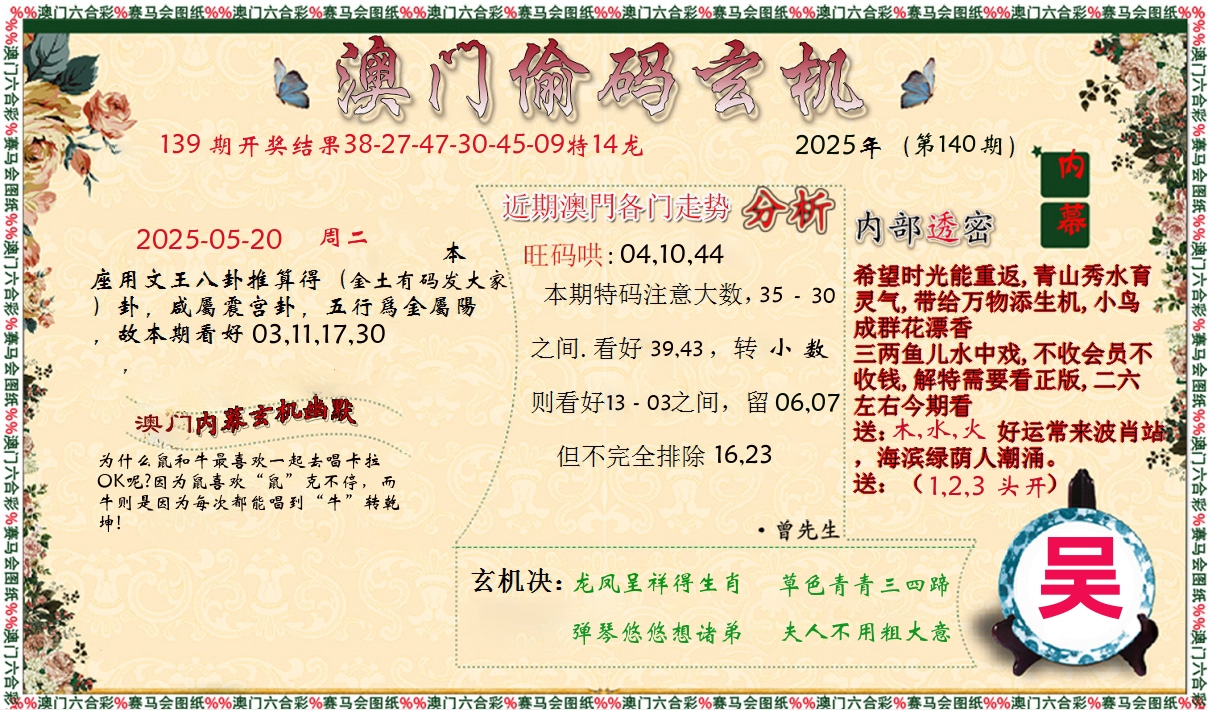 %%澳门六合彩%赛马会图纸%%澳门六合彩%赛马会图纸%%澳门六合彩%赛马会图纸%%澳门六合彩%赛马会图纸%%澳门六合彩%赛马会图纸%%澳门六合彩%赛马会图纸%%
澳门偷码玄机
139 期开奖结果38-27-47-30-45-09特14龙
2025年（第140期）
内幕
2025-05-20 周二
本
座用文王八卦推算得（金土有码发大家
）卦，咸屬震宫卦，五行爲金屬陽
，故本期看好 03,11,17,30
，
澳门内幕玄机幽默
为什么鼠和牛最喜欢一起去唱卡拉
OK呢?因为鼠喜欢“鼠”克不停，而
牛则是因为每次都能唱到“牛”转乾
坤!
近期澳門各门走势 分析
旺码哄: 04,10,44
本期特码注意大数, 35 - 30
之间. 看好 39,43 ，转 小 数
则看好13 - 03之间，留 06,07
但不完全排除 16,23
·曾先生
内部透密
希望时光能重返, 青山秀水育
灵气, 带给万物添生机, 小鸟
成群花漂香
三两鱼儿水中戏, 不收会员不
收钱, 解特需要看正版, 二六
左右今期看
送: 木,水,火 好运常来波肖站
，海滨绿荫人潮涌。
送: （1,2,3 头开）
玄机决: 龙凤呈祥得生肖 草色青青三四蹄
弹琴悠悠想诸弟 夫人不用粗大意
吴
%%澳门六合彩%赛马会图纸%%澳门六合彩%赛马会图纸%%澳门六合彩%赛马会图纸%%澳门六合彩%赛马会图纸%%澳门六合彩%赛马会图纸%%澳门六合彩%赛马会图纸%%